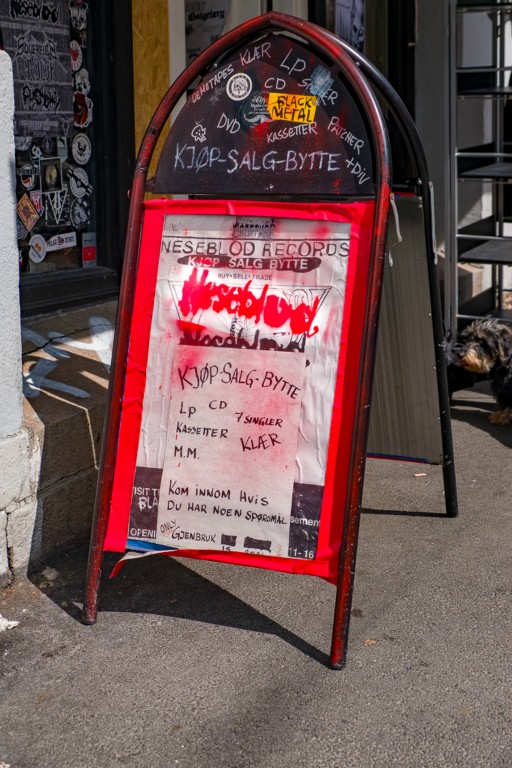 DEMOTAPES KLÆR LP
CD
BLACK
METAL
DVD
KASSETTER
PATCHER
+DIV
KJØP-SALG-BYTTE
NESEBLOD RECORDS
KJØP SALG BYTTE
BUY·SELL·TRADE
Neseblod
KJØP-SALG-BYTTE
LP CD
7 SINGLER
KASSETTER
KLÆR
M.M.
KOM INNOM HVIS
DU HAR NOEN SPØRSMÅL
ONLY
GJENBRUK
VISIT
BLA
sement
OPEN
11-16